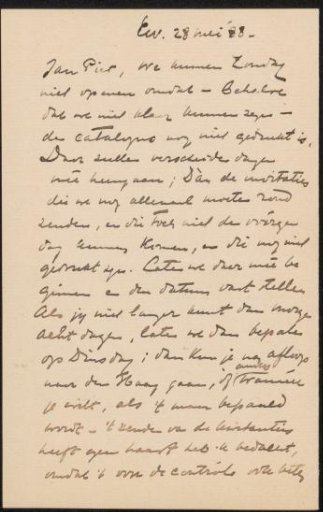 Ew. 28 mei '88.-
Jan Piet, We kunnen Zondag
niet openen omdat - Behalve
dat we niet klaar kunnen zijn -
de catalogus nog niet gedrukt is.
Daar zullen verscheide dagen
mêe heengaan; Dàn de invitaties
die we nog allemaal moeten rond
zenden, en die toch niet de vórige
dag kunnen komen, en die nog niet
gedrukt zijn. Laten we daar mêe be
ginnen en den datum vast stellen
Als jij niet langer kunt dan
acht dagen, laten we dan bepalen
op Dinsdag; dan kun je nog
naar den Haag gaan, of anders
je wilt, als 't maar bepaald
wordt - 't zenden van de
heeft geen haast heb ik bedacht,
omdat 't voor de contrôle ook beter